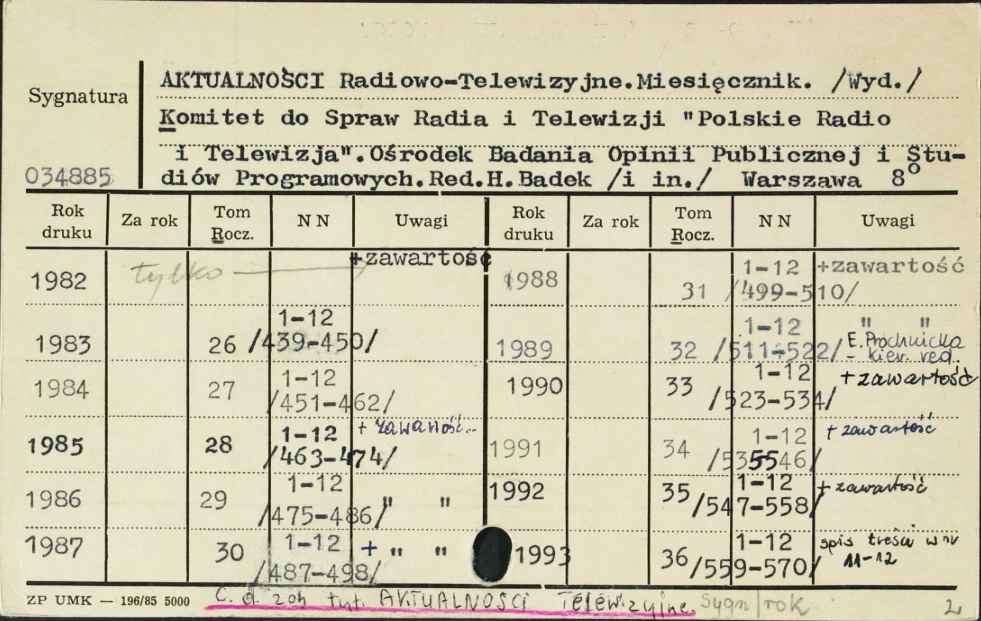 AKTUALNOŚCI Radiowo-Telewizyjne.Miesięcznik. /Wyd./
Sygnatura
Komitet do Spraw Radia i Telewizji "Polskie Radio
i Telewizja".Ośrodek Badania Opinii Publicznej i Stu-
034885 diów Programowych.Red.H.Badek /i in./ Warszawa 8°
Rok druku Za rok Tom Rocz. NN Uwagi Rok druku Za rok Tom Rocz. NN Uwagi
1982 tylko +zawartość
1983 26 1-12 /439-450/
1984 27 1-12 /451-462/
1985 28 1-12 /463-474/ + zawartość
1986 29 1-12 /475-486/ " "
1987 30 1-12 /487-498/ + " "
1988 31 1-12 /499-510/ +zawartość
1989 32 1-12 /511-522/ " " E. Prochnicka - kier. red.
1990 33 1-12 /523-534/ + zawartość
1991 34 1-12 /535-546/ + zawartość
1992 35 1-12 /547-558/ + zawartość
1993 36 1-12 /559-570/ spis treści w nr 11-12
ZP UMK — 196/85 5000 C. d. zob tyt. AKTUALNOŚCI Telewizyjne Sygn/rok 2